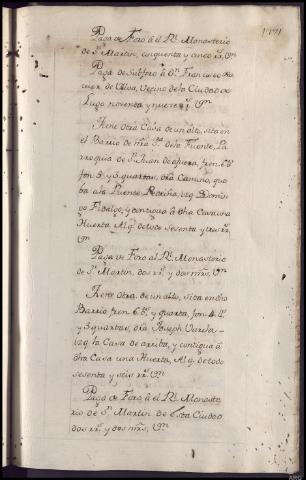 Paga de Foro â el Rl. Monasterio
de Sn. Martin, cinquenta y cinco rr. Vn
Paga de Subforo â Dn. Francisco
de Ulloa, Vecino de la Ciudad de
Lugo noventa y nueve rr. Vn
Tiene otra Casa de un alto, sita en
el Barrio de nra. Sa. de la Fuente, Pa
rroquia de Sn. Juan de afuera, fren. 6 bs.
fon. 5 y 3 quartas, dra. Camino, que
ba ala Puente Rociña, izq. Domin
go Fidalgo, y contiguo â dha Casa una
Huerta, Alq. de todo sesenta y tres rr.
Vn
Paga de Foro al Rl. Monasterio
de Sn. Martin, dos rr. y dos mrs. Vn
Tiene otra de un alto, sita en dho
Barrio, fren. 6 bs. y quarta, fon. 4 bs.
y 3 quartas, dra. Joseph Varela
izq. la Casa de arriba, y contigua â
dha Casa una Huerta, Alq. de todo
sesenta y seis rr. Vn
Paga de Foro â el Rl. Monaste
rio de Sn. Martin de esta Ciudad
dos rr. y dos mrs. Vn